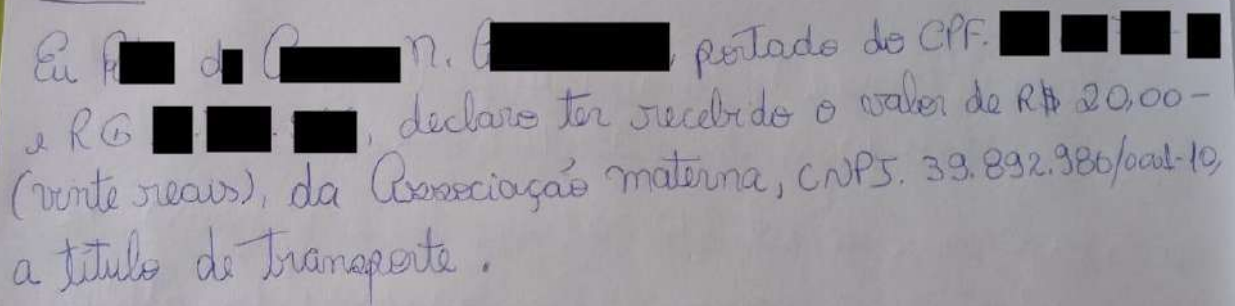 Eu d n. , portado do CPF.
e RG , declaro ter recebido o valor de R$ 20,00-
(vinte reais), da Associação materna, CNPJ. 39.892.980/0001-10,
a título de transporte.